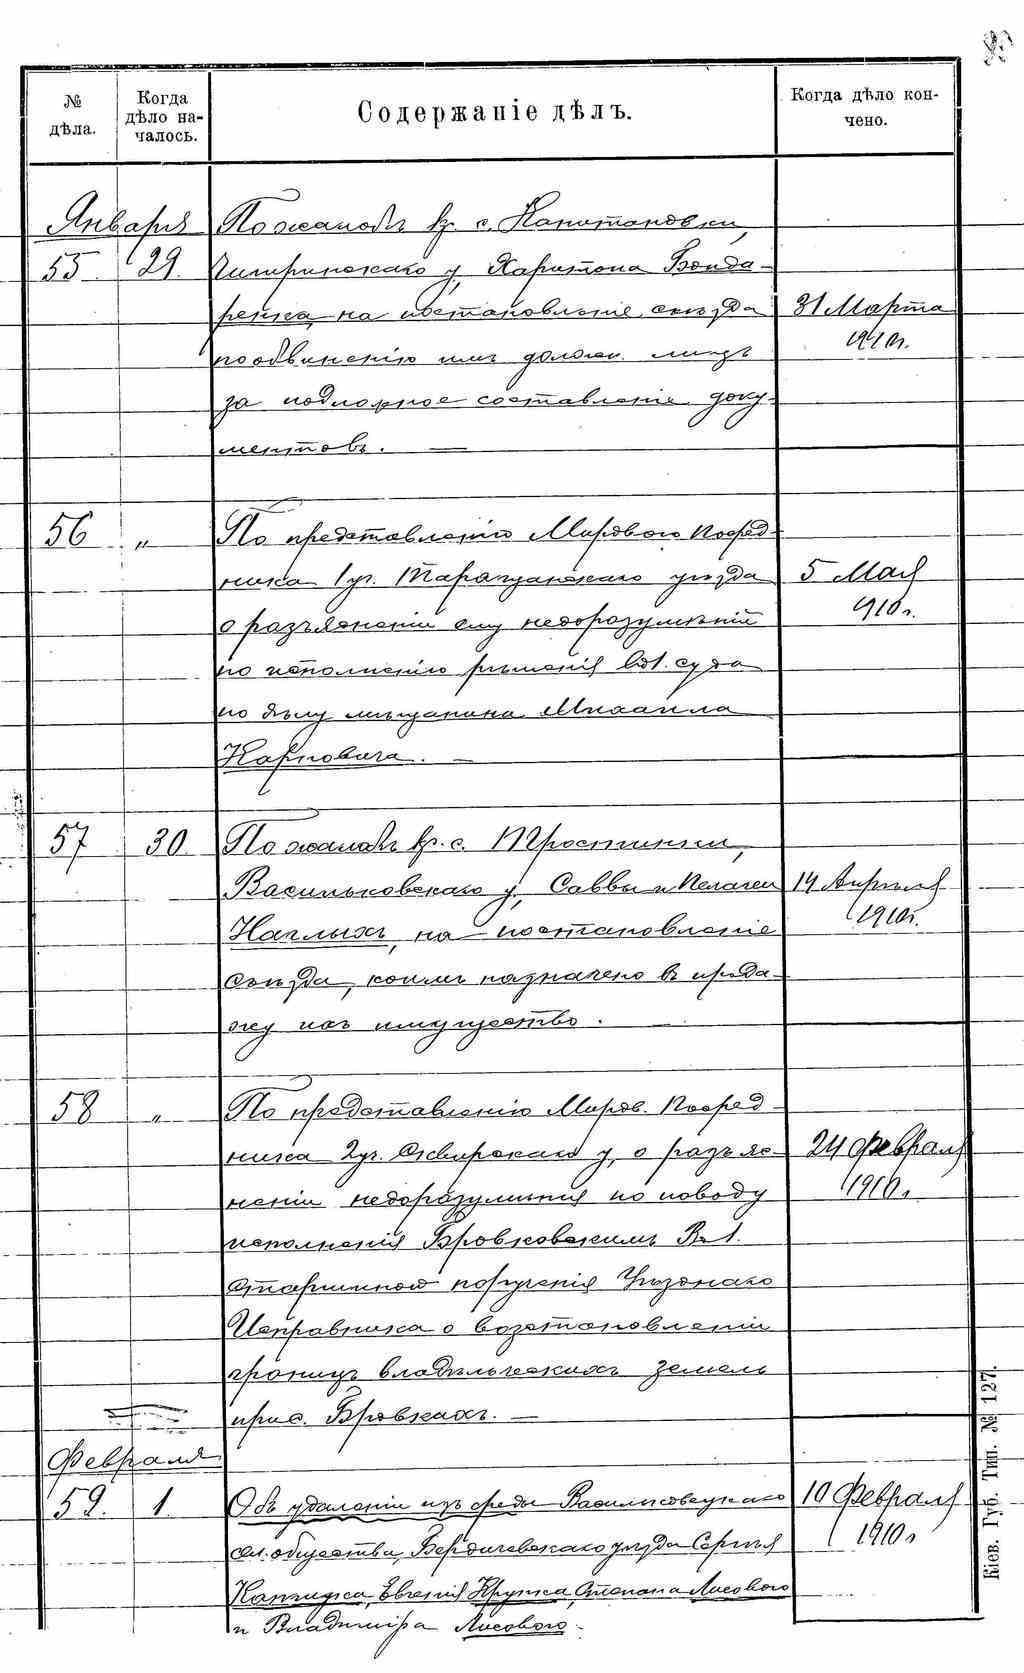 № дѣла. Когда дѣло началось. Содержаніе дѣлъ. Когда дѣло кончено.
Января По жалобѣ кр. с. Капитановки,
55. 29. Чигиринскаго у, Харитона Бонда-
ренка, на постановленіе съѣзда 31 Марта
по обвиненію им долж. лицъ 1910 г.
за подложное составленіе доку-
ментовъ. —
56 „ По представленію Мирового Посред-
ника 1 уч. Таращанскаго уѣзда 5 Мая
о разъясненіи ему недоразумѣній 1910 г.
по исполненію рѣшенія вол. суда
по дѣлу мѣщанина Михаила
Карповича. —
57 30. По жалобѣ кр. с. Тростинки,
Васильковскаго у, Саввы и Пелагеи 14 Апрѣля
на постановленіе 1910 г.
съѣзда, коимъ назначено въ прода-
жу ихъ имущество. —
58 „ По представленію Миров. Посред-
ника 2 уч. Сквирскаго у, о разъяс- 24 Февраля
неніи недоразумѣнія по поводу 1910 г.
исполненія Бровковскимъ Вол.
Старшиной порученія Уѣзднаго
Исправника о возстановленіи
границъ владѣльческихъ земель
при с. Бровкахъ. —
Февраля
59. 1. Объ удаленіи изъ среды 10 Февраля
сел. общества, Бердичевскаго уѣзда Сергѣя 1910 г
Евгенія Крупка, Степана Лисового
и Владиміра Лисового.
Кіев. Губ. Тип. № 127.